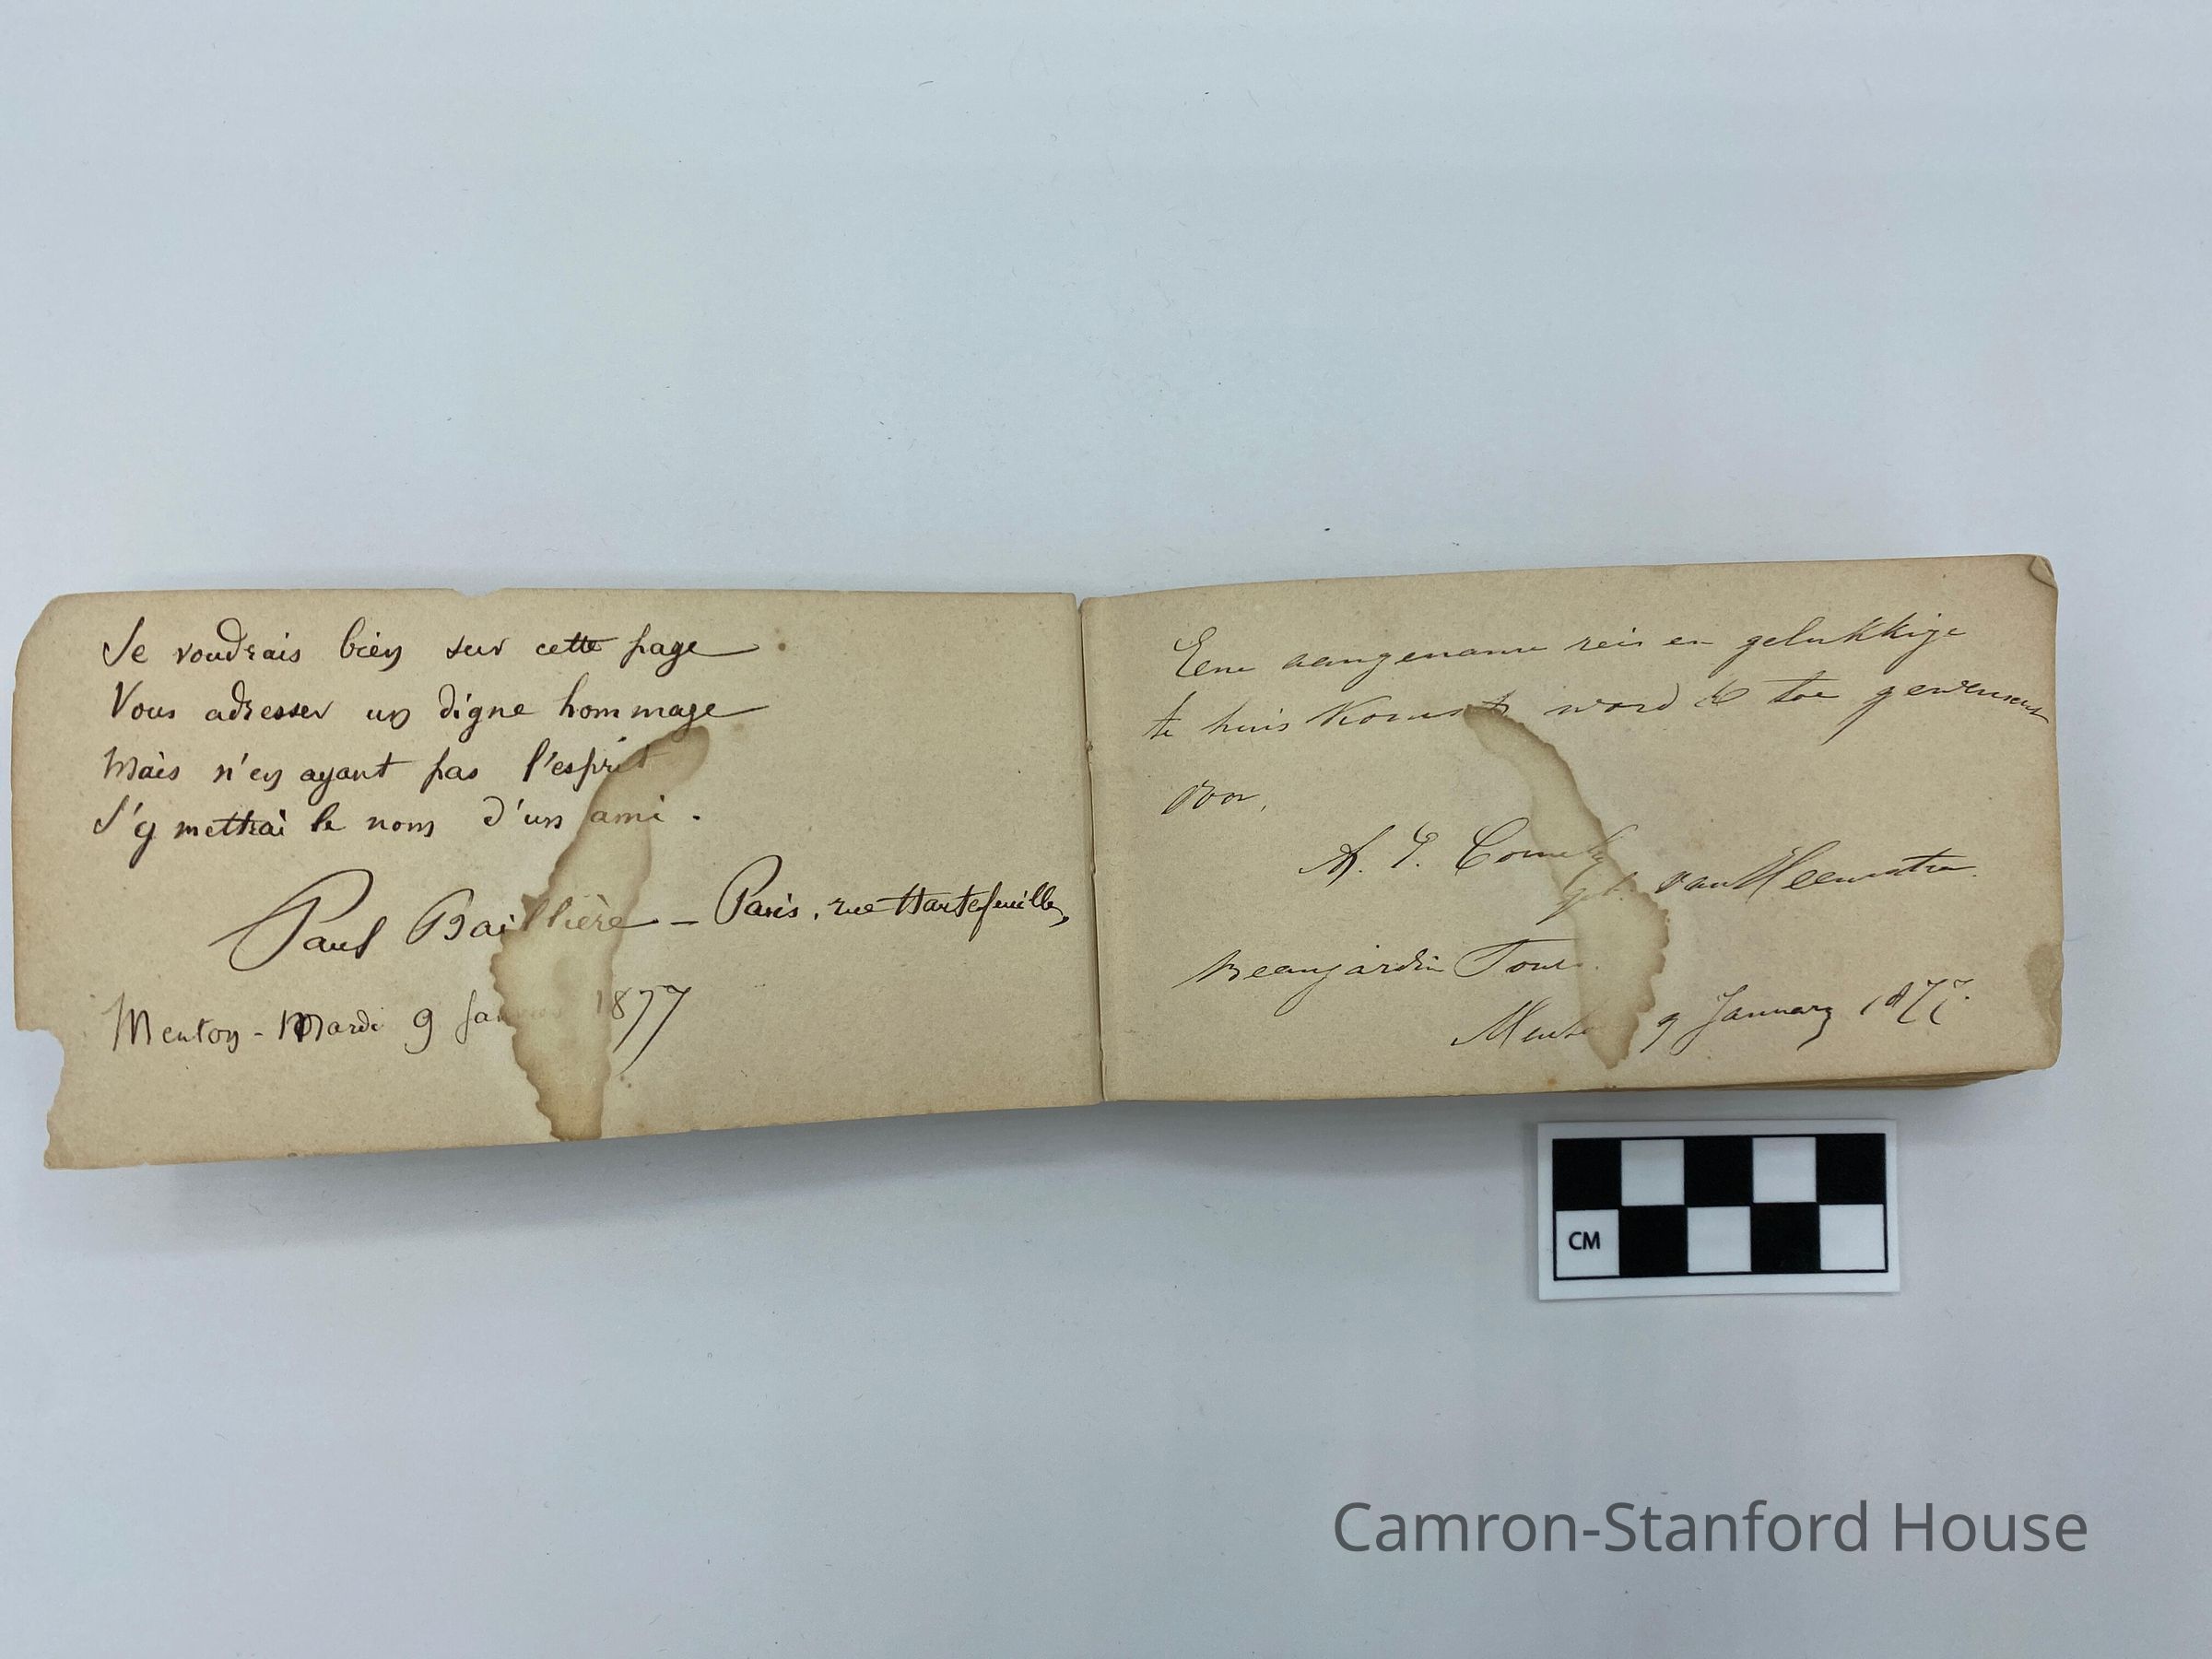 Je voudrais bien sur cette page
Vous adresser un digne hommage
Mais n'en ayant pas l'esprit
J'y mettrai le nom d'un ami.
Paul Baillière – Paris, rue Hautefeuille,
Menton - Mardi 9 Janvier 1877
Eene aangename reis en gelukkige
te huis komst word U toe gewenscht
voor,
A. E.
van Heemstra
Beaujardin Tours.
9 January 1877.
CM
Camron-Stanford House